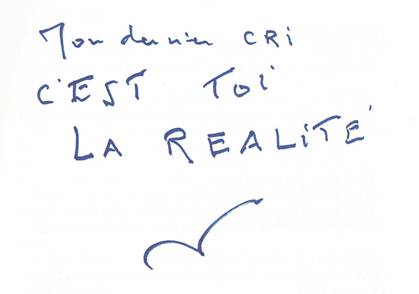 Mon dernier CRi
C'EST TOi
LA REALiTE'